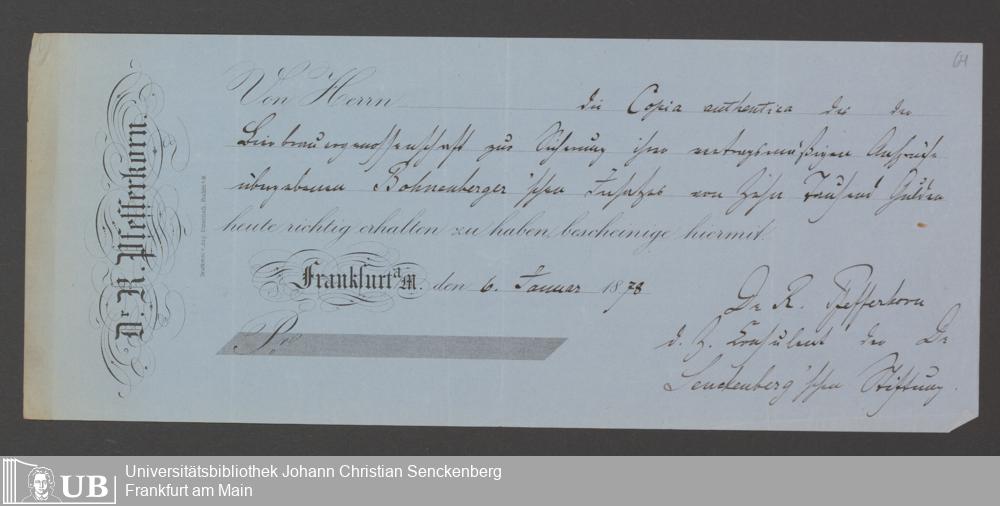 64
Dr. R. Pfefferkorn.
Von Herrn die Copia authentica des der
Bierbrauergenossenschaft zur Sicherung ihrer vertragsmäßigen Ansprüche
übergebenen Bohnenberger'schen Insatzes von Zehn Tausend Gulden
heute richtig erhalten zu haben, bescheinige hiermit.
Frankfurt a/M. den 6. Januar 1878
Dr R. Pfefferkorn
d. Z. Consulent der Dr
Senckenberg'schen Stiftung.
Pr.
UB
Universitätsbibliothek Johann Christian Senckenberg
Frankfurt am Main